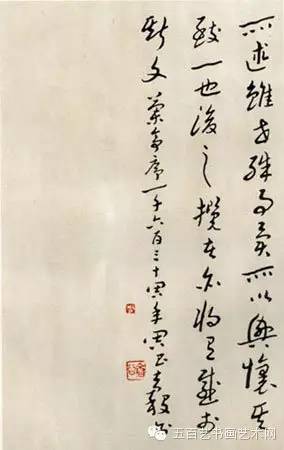 所述雖世殊事異所以興懷其
致一也後之攬者亦將有感於
斯文 蘭亭序一千六百三十周年周
五百艺书画艺术网